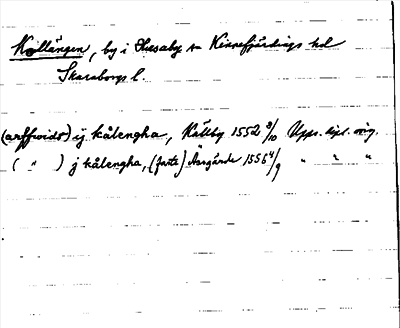 Kållängen, by i Husaby sn Kinnefjärdings hd
Skaraborgs l.
(arffwidz) ij kålengha, Källby 1552 3/10 Upps. dipl. orig.
( " ) j kålengha, (fonte) Åsgårde 1556 4/9 " " "